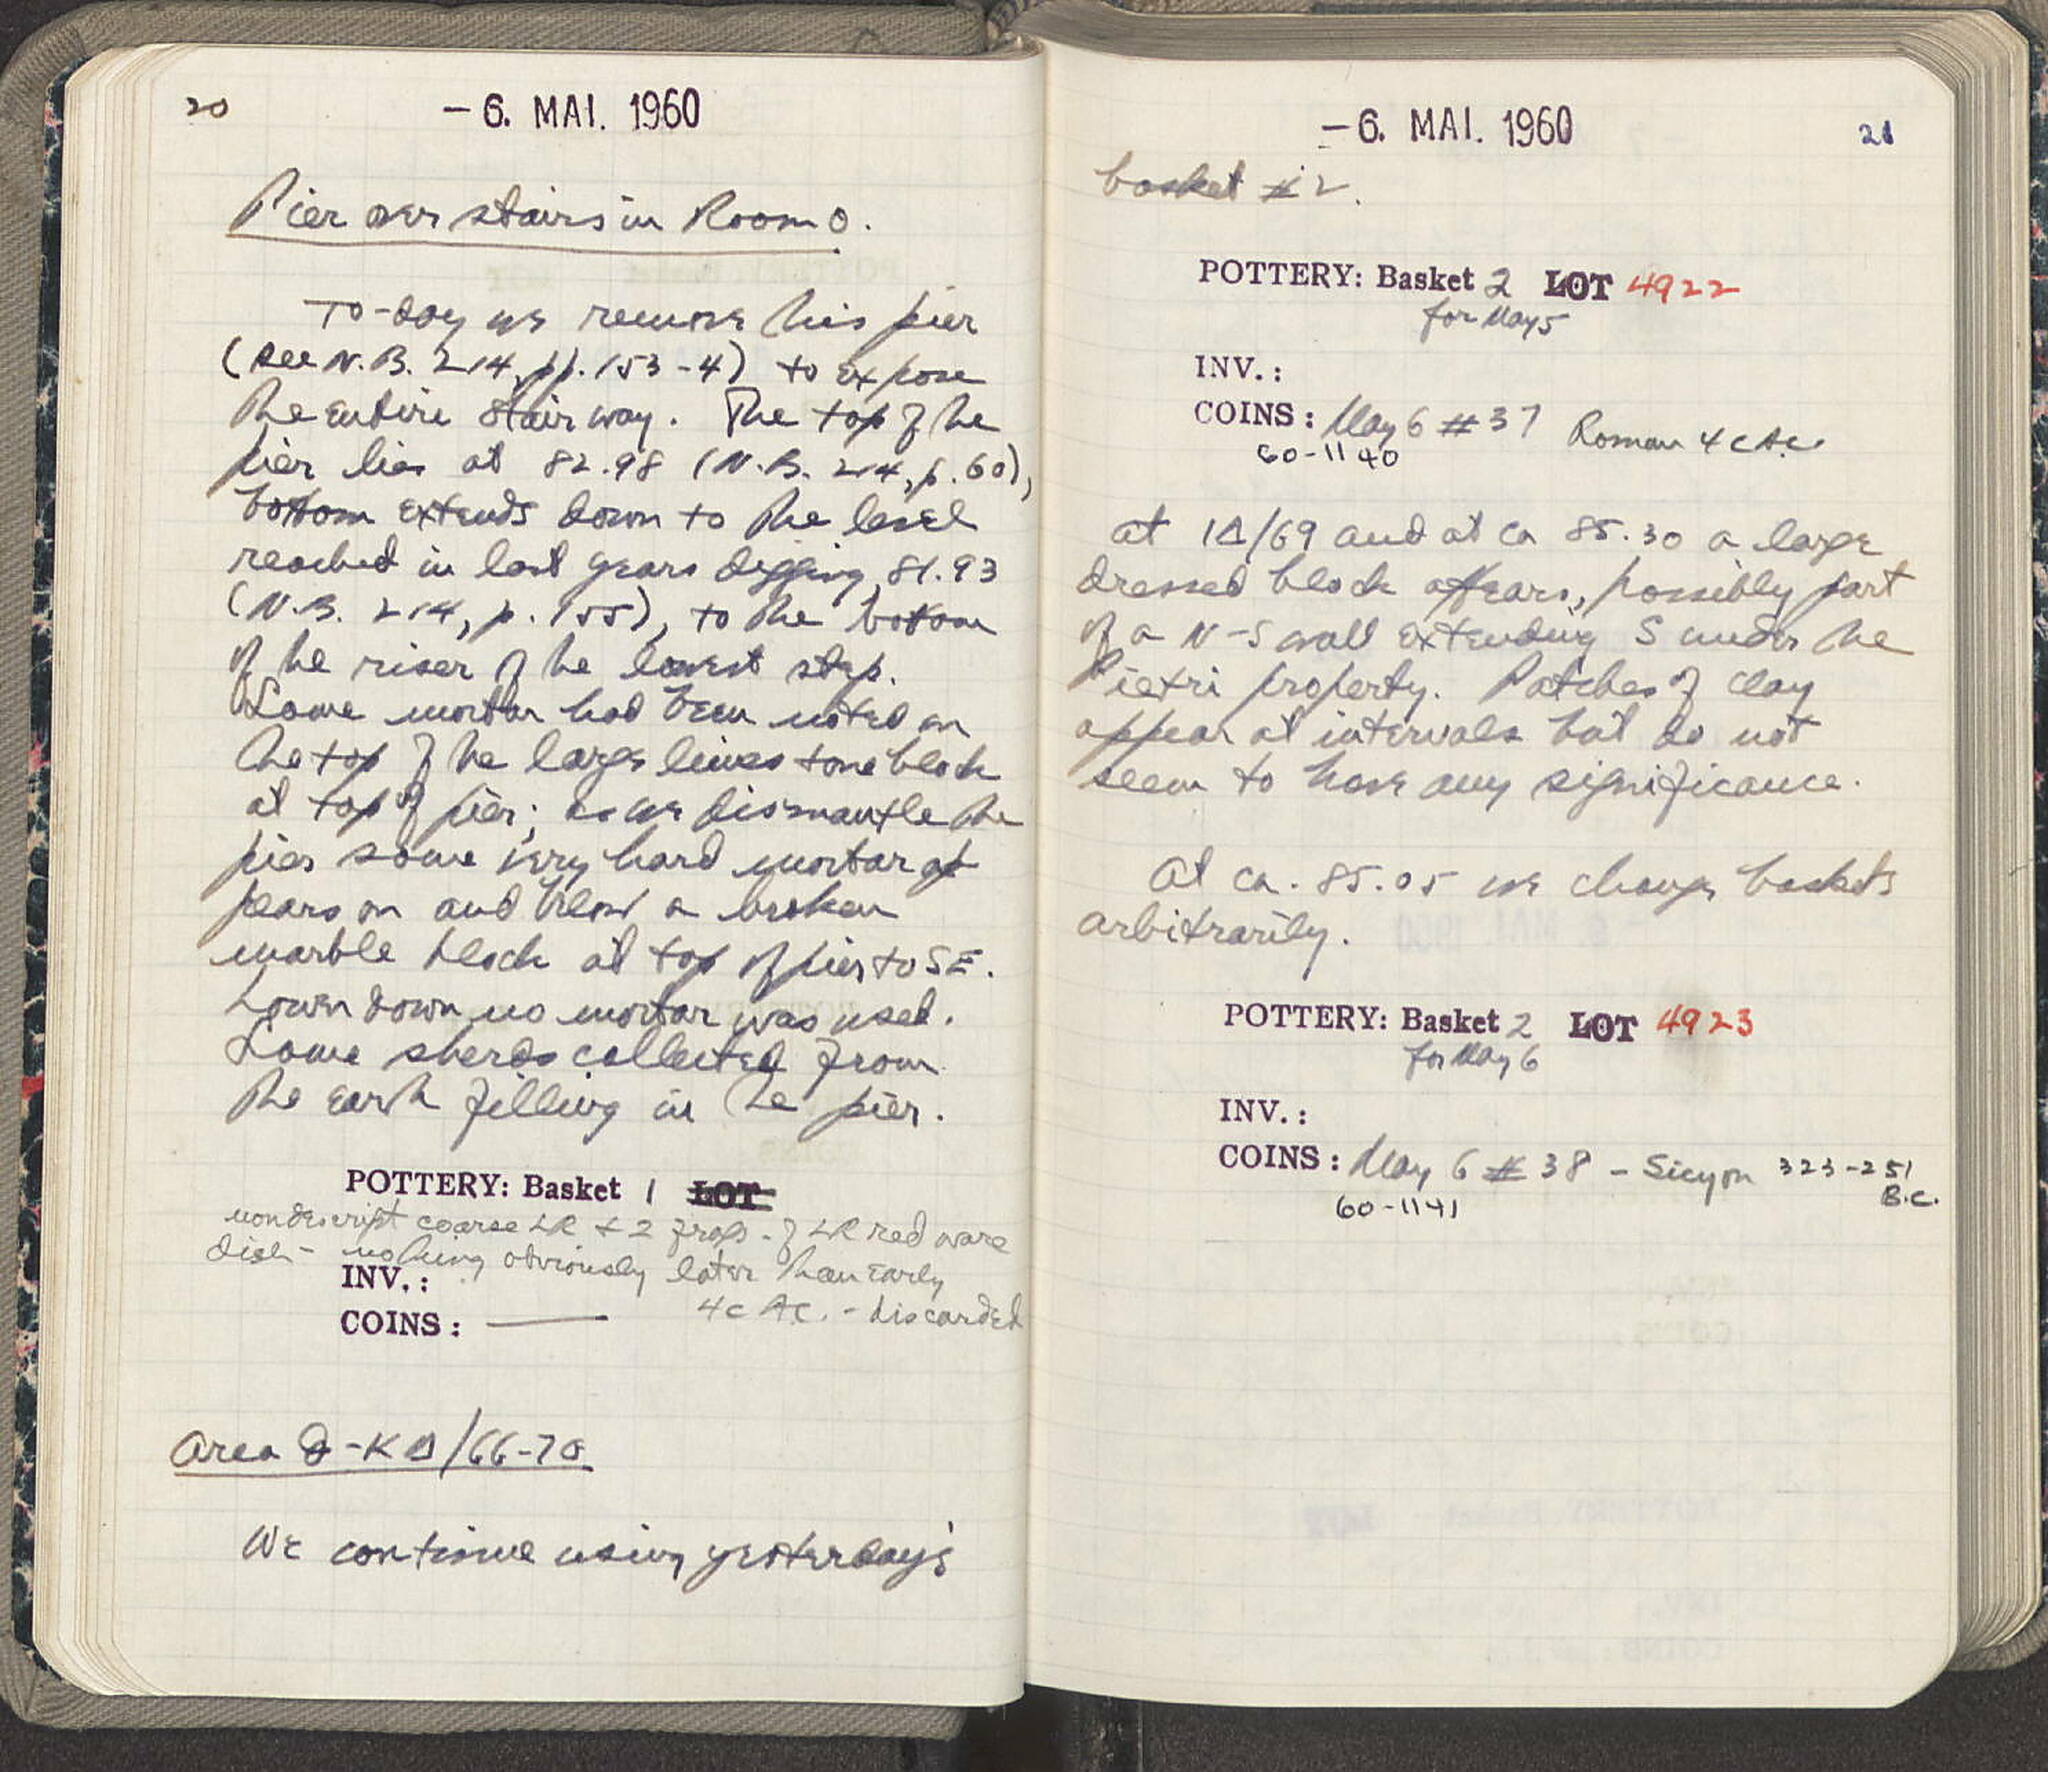 20
- 6. MAI. 1960
Pier over stairs in Room O.
To-day we remove this pier
(see N.B. 214, pp. 153-4) to expose
the entire stairway. The top of the
pier lies at 82.98 (N.B. 214, p. 60),
bottom extends down to the level
reached in last years digging, 81.93
(N.B. 214, p. 155), to the bottom
of the riser of the lowest step.
Some mortar had been noted on
the top of the large limestone block
at top of pier; as we dismantle the
pier some very hard mortar ap
pears on and below a broken
marble block at top of pier to SE.
Lower down no mortar was used.
Some sherds collected from
the earth filling in the pier.
POTTERY: Basket 1 LOT
nondescript coarse LR & 2 frags. of LR red ware
dish - nothing obviously later than early
INV.:
4c A.C. - discarded
COINS: —
Area -K Δ/66-70
We continue using yesterday's
- 6. MAI. 1960
21
basket #2.
POTTERY: Basket 2 LOT 4922
for May 5
INV.:
COINS: May 6 #37 Roman 4 c A.C.
60-1140
at ΙΔ/69 and at ca 85.30 a large
dressed block appears, possibly part
of a N-S wall extending S under the
Pietri property. Patches of clay
appear at intervals but do not
seem to have any significance.
At ca. 85.05 we change baskets
arbitrarily.
POTTERY: Basket 2 LOT 4923
for May 6
INV.:
COINS: May 6 #38 - Sicyon 323-251
B.C.
60-1141